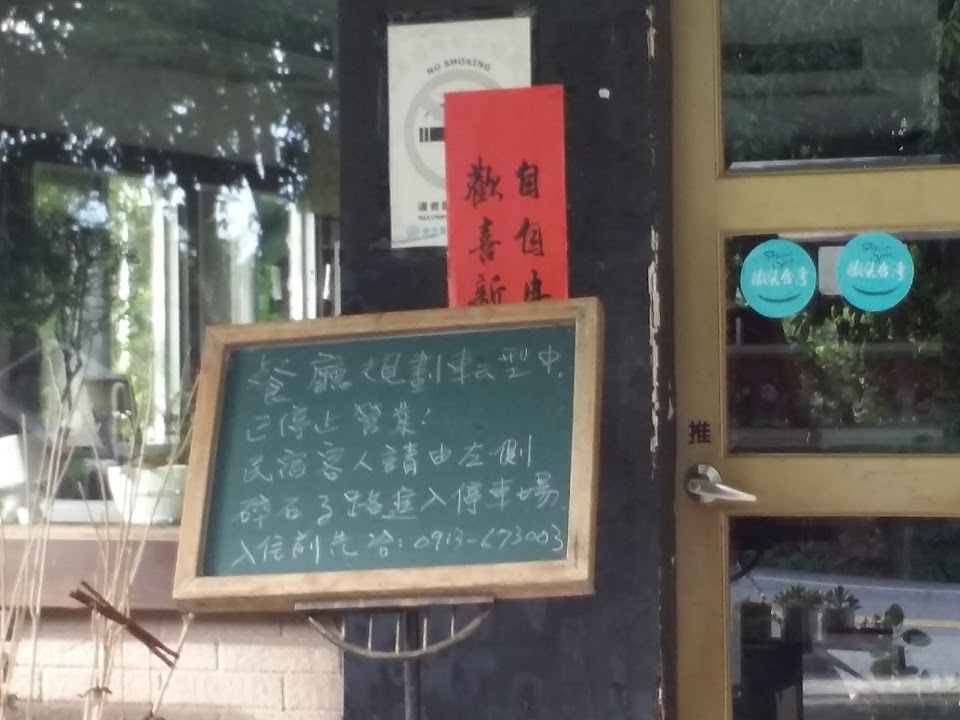 NO SMOKING
自自由
歡喜新
餐廳規劃轉型中,
已停止營業!
民宿客人請由左側
碎石子路進入停車場
入住前先洽:0913-673003
微笑台灣
微笑台灣
推